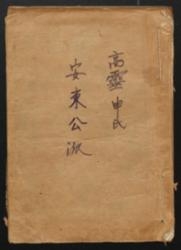 高靈申氏
安東公派